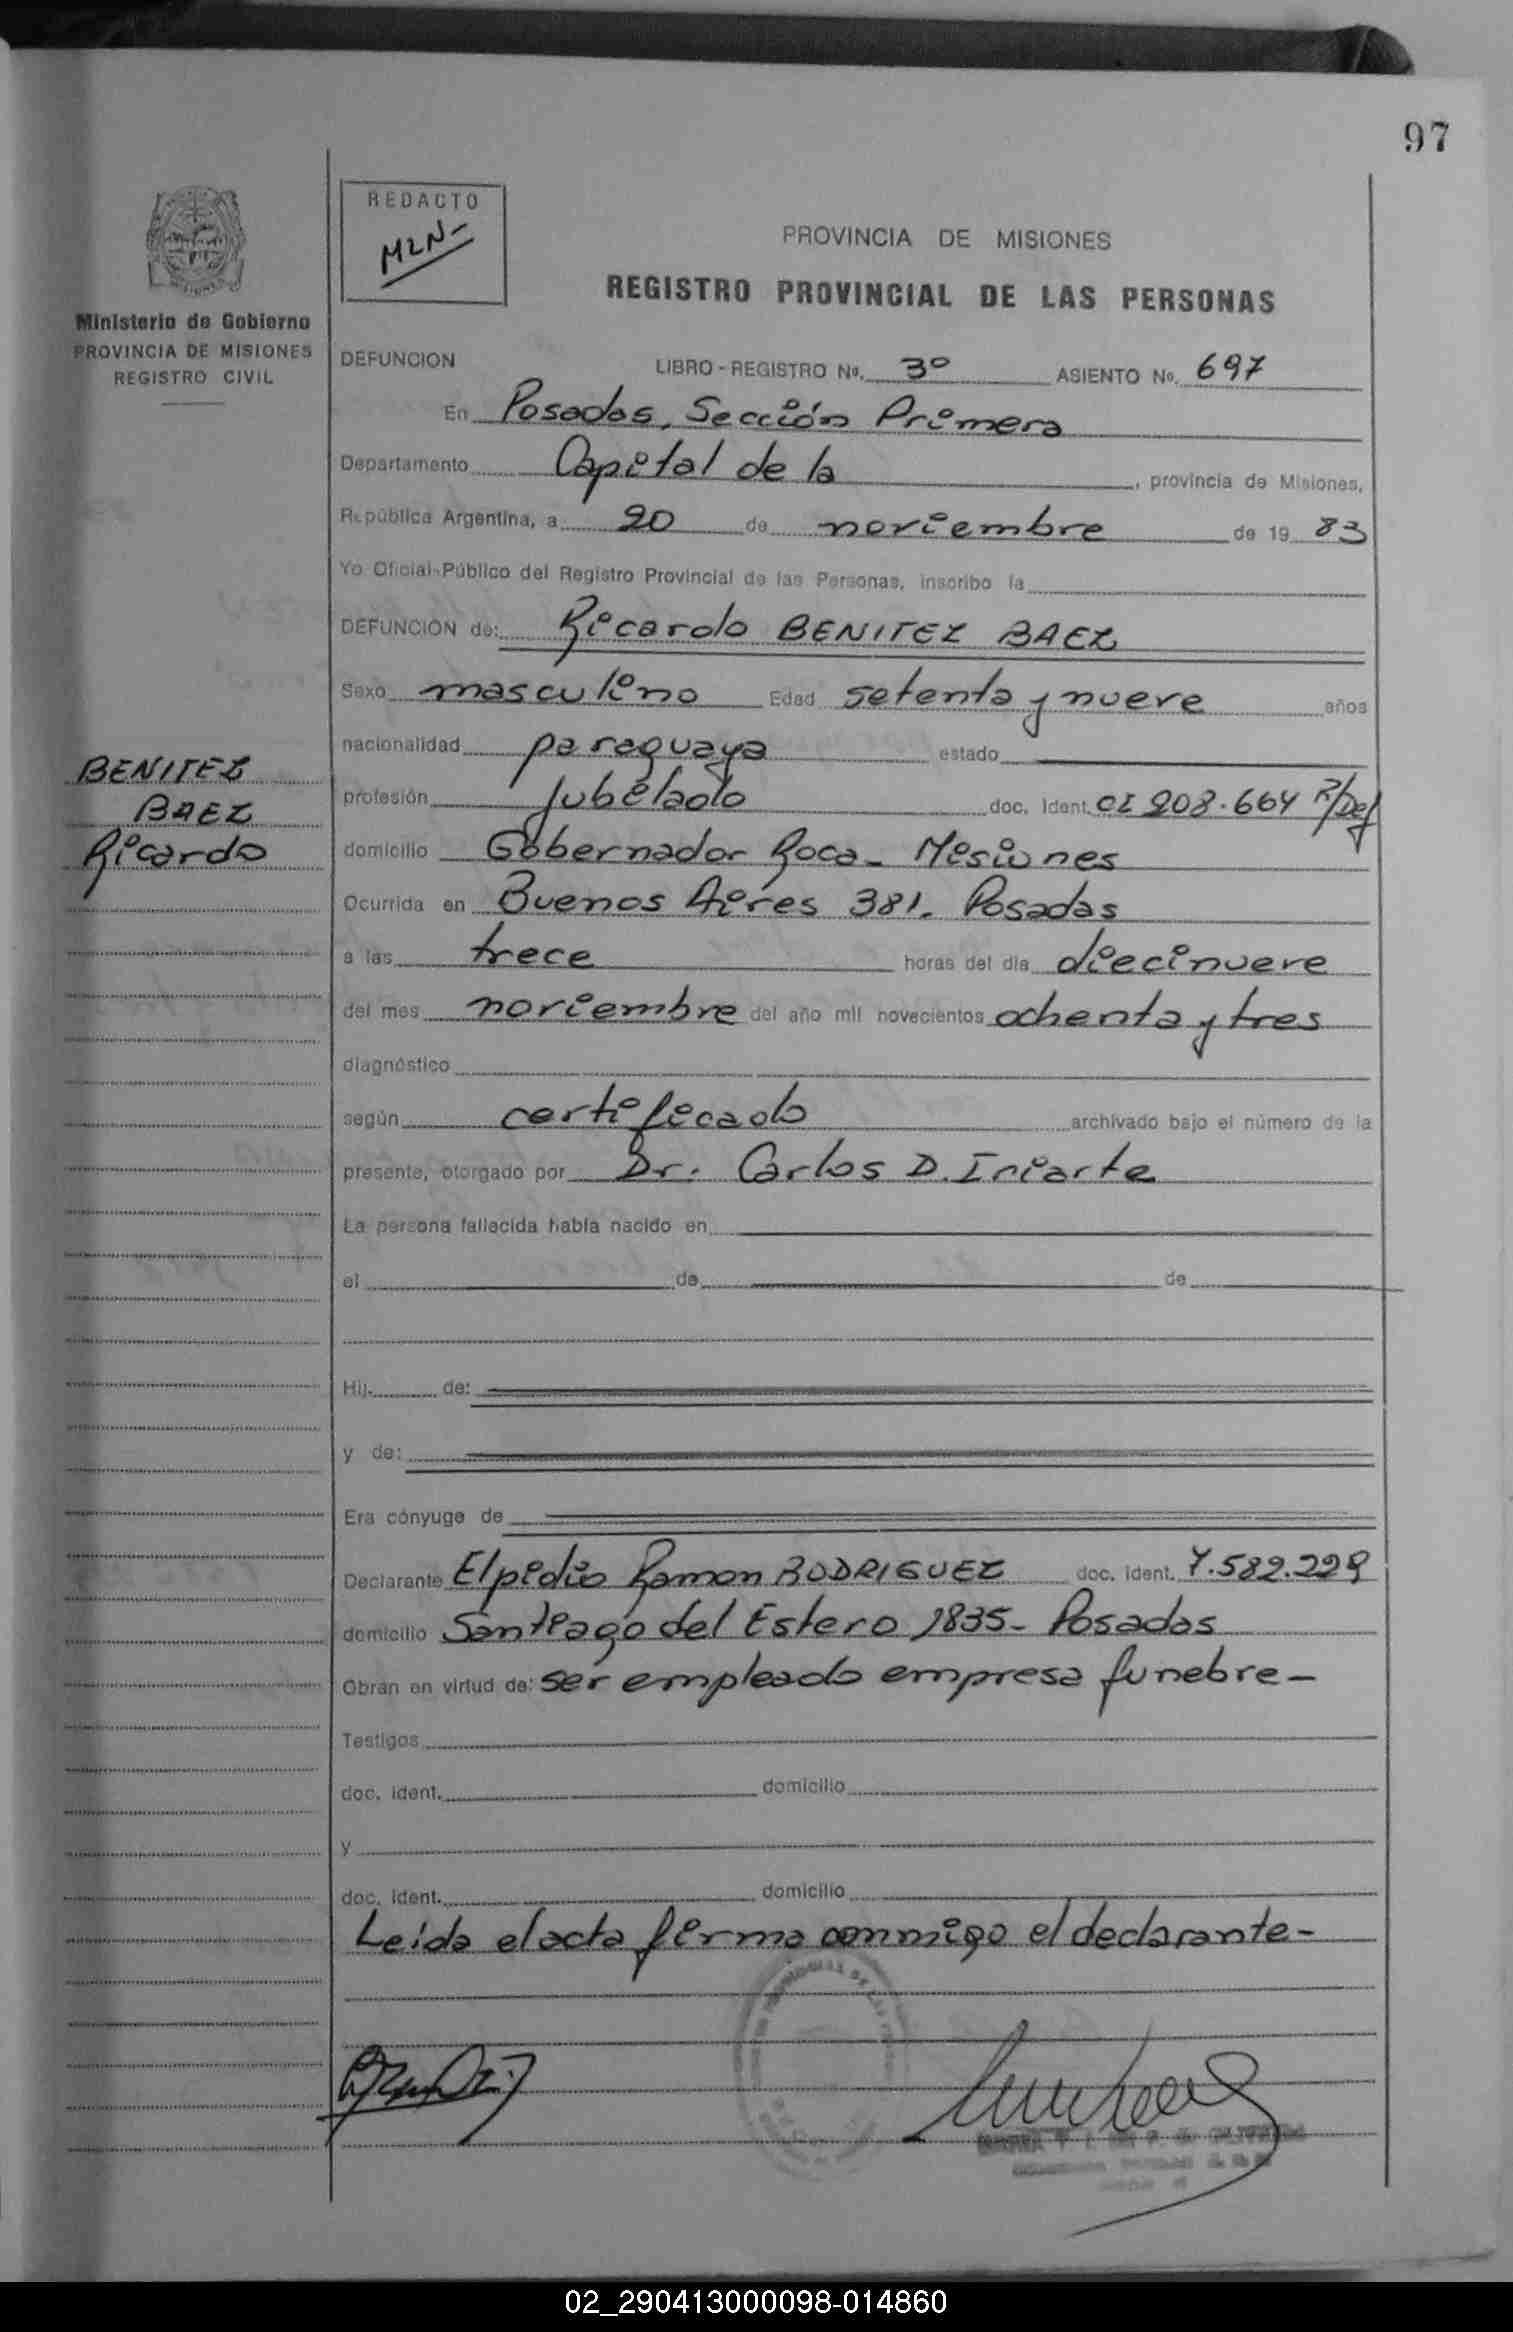 97
REDACTO
MLN-
PROVINCIA DE MISIONES
REGISTRO PROVINCIAL DE LAS PERSONAS
Ministerio de Gobierno
PROVINCIA DE MISIONES
REGISTRO CIVIL
DEFUNCION LIBRO-REGISTRO No. 3º ASIENTO No. 697
En Posadas, Sección Primera
Departamento Capital de la, provincia de Misiones,
República Argentina, a 20 de noviembre de 19 83
Yo Oficial Público del Registro Provincial de las Personas, inscribo la
DEFUNCION de: Ricardo BENITEZ BAEZ
Sexo masculino Edad setenta y nueve años
nacionalidad paraguaya estado
BENITEZ
BAEZ
Ricardo
profesión Jubilado doc. ident. CI 208.664 P/Def
domicilio Gobernador Roca - Misiones
Ocurrida en Buenos Aires 381. Posadas
a las trece horas del día diecinueve
del mes noviembre del año mil novecientos ochenta y tres
diagnóstico
según certificado archivado bajo el número de la
presente, otorgado por Dr. Carlos D. Iriarte
La persona fallecida había nacido en
el de de
Hij. de:
y de:
Era cónyuge de
Declarante Elpidio Ramon RODRIGUEZ doc. ident. 7.582.229
domicilio Santiago del Estero 1835- Posadas
Obran en virtud de: ser empleado empresa funebre-
Testigos
doc. ident. domicilio
y
doc. ident. domicilio
Leida el acta firma conmigo el declarante-
02_290413000098-014860